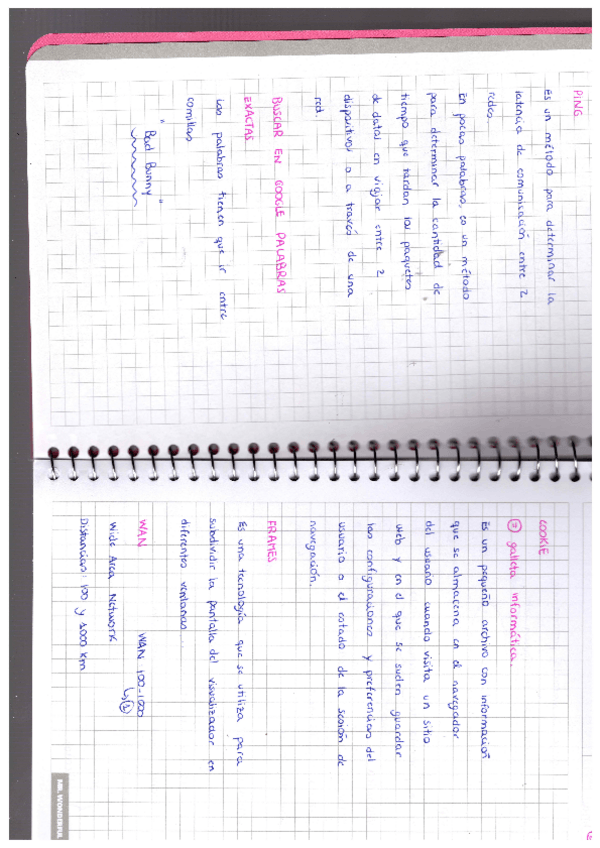 PING
Es un método para determinar la
latencia de comunicación entre 2
redes.
En pocas palabras, es un método
para determinar la cantidad de
tiempo que tardan los paquetes
de datos en viajar entre 2
dispositivos o a través de una
red.
BUSCAR EN GOOGLE PALABRAS
EXACTAS
Las palabras tienen que ir entre
comillas
"Bad Bunny"
COOKIE
= galleta informática.
Es un pequeño archivo con información
que se almacena en el navegador
del usuario cuando visita un sitio
web y en el que se suelen guardar
las configuraciones y preferencias del
usuario o el estado de la sesión de
navegación.
FRAMES
Es una tecnología que se utiliza para
subdividir la pantalla del visualizador en
diferentes ventanas.
WAN
WAN 100-1000
Wide Area Network
Distancias: 100 y 1000 km
MR. WONDERFUL